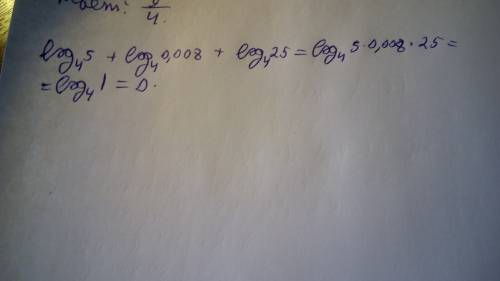 Ответ: /4.
log₄5 + log₄0,008 + log₄25 = log₄ 5·0,008·25 =
= log₄1 = 0.